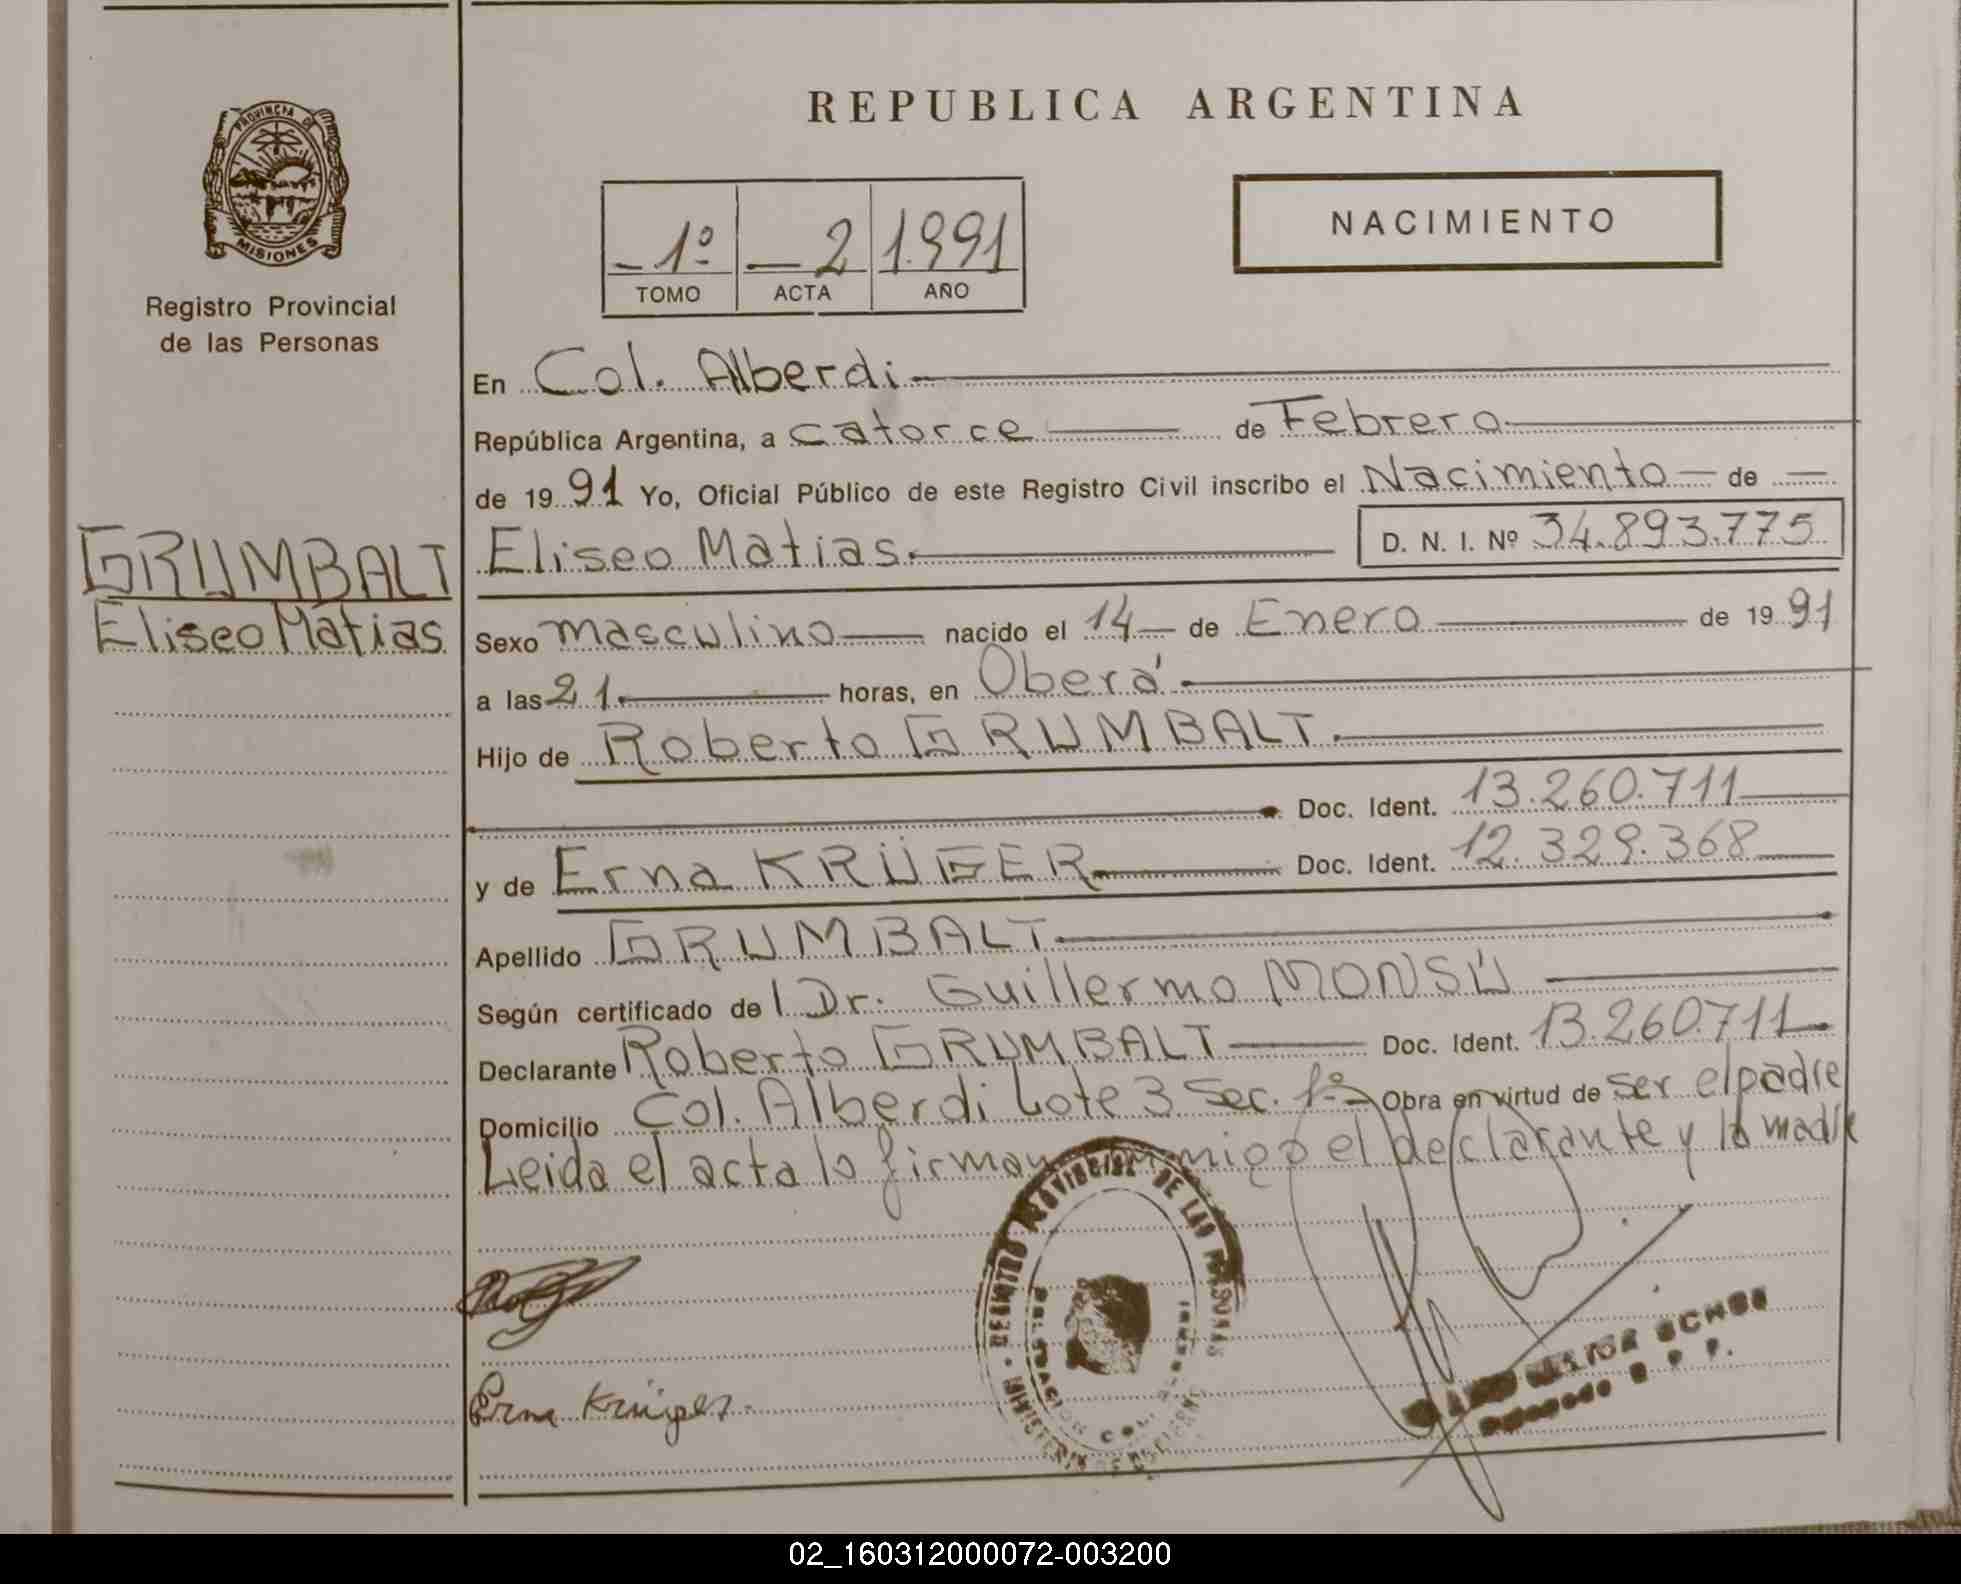 REPUBLICA ARGENTINA
PROVINCIA DE
MISIONES
Registro Provincial
de las Personas
GRUMBALT
Eliseo Matias
NACIMIENTO
1º 2 1.991
TOMO ACTA AÑO
En Col. Alberdi
República Argentina, a catorce de Febrero
de 1991 Yo, Oficial Público de este Registro Civil inscribo el Nacimiento de
Eliseo Matias. D. N. I. Nº 34.893.775
Sexo masculino nacido el 14 de Enero de 1991
a las 21. horas, en Oberá
Hijo de Roberto GRUMBALT.
Doc. Ident. 13.260.711
y de Erna KRÜGER Doc. Ident. 12.329.368
Apellido GRUMBALT
Según certificado del Dr. Guillermo MONSÚ
Declarante Roberto GRUMBALT Doc. Ident. 13.260.711
Domicilio Col. Alberdi Lote 3 Sec. 1º Obra en virtud de ser el padre
Leida el acta lo firman conmigo el declarante y la madre
Erna Krüger.
02_160312000072-003200